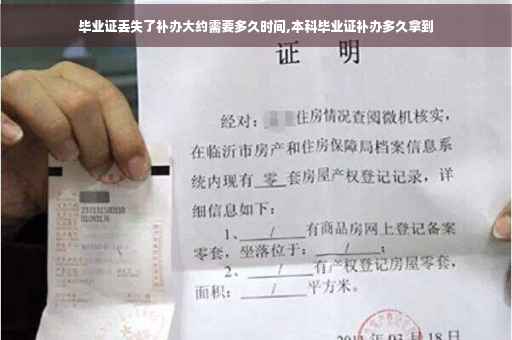 毕业证丢失了补办大约需要多久时间,本科毕业证补办多久拿到
证 明
经对: 住房情况查阅微机核实,
在临沂市房产和住房保障局档案信息系
统内现有 零 套房屋产权登记记录,详
细信息如下:
1、 / 有商品房网上登记备案
零套,坐落位于: / ;
2、 / 有产权登记房屋零套,
面积: / 平方米。
03 月 18 日